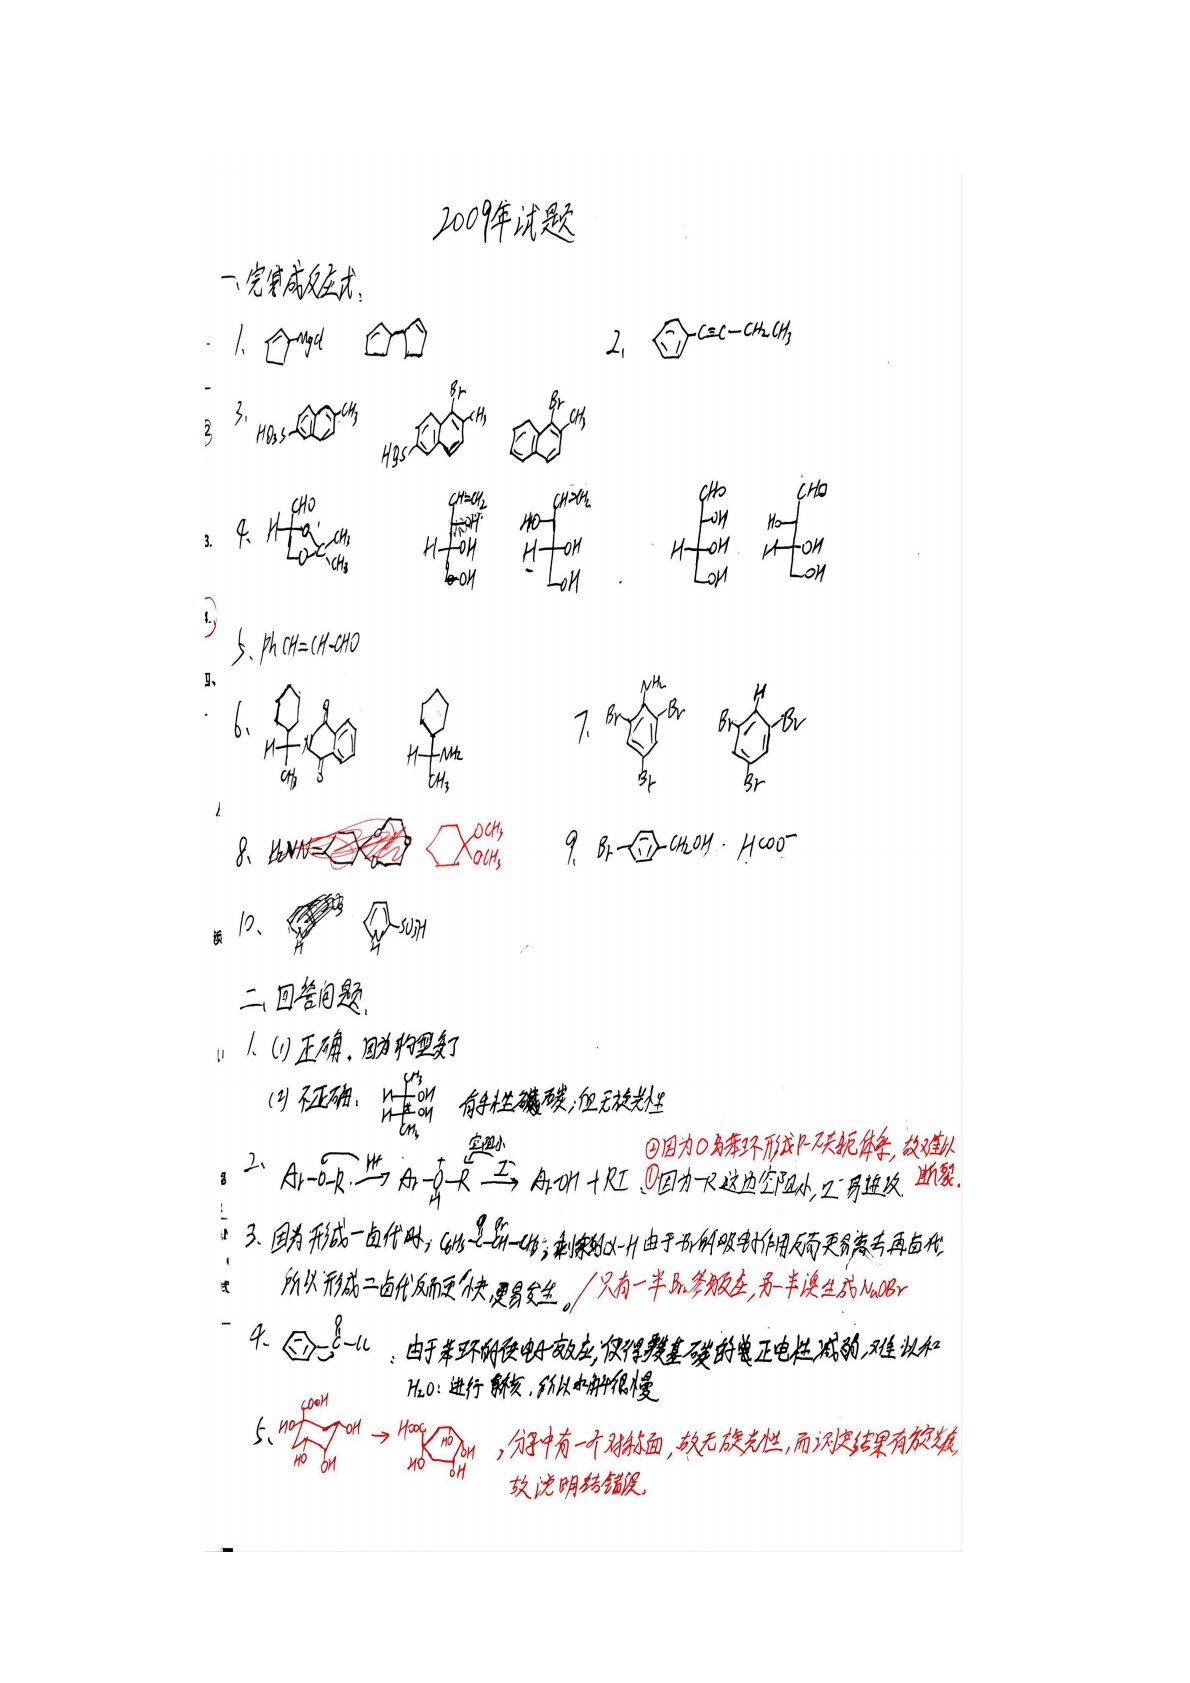 2009年试题
一、完成反应式:
1. MgCl
2. C≡C-CH₂CH₃
3. HO₃S CH₃ Br CH₃ HO₃S Br CH₃
4. CHO H O O C CH₃ CH₃ CH=CH₂ H OH OH CH=CH₂ HO H OH OH CHO OH H OH OH CHO HO H OH OH
5. PhCH=CH-CHO
6. H N CH₃ O O H NH₂ CH₃
7. NH₂ Br Br Br H Br Br Br
8. H₂NN= OCH₃ OCH₃
9. Br CH₂OH . HCOO⁻
10. N H N H SO₃H
二、回答问题.
1. (1) 正确. 因为构型变了
(2) 不正确: CH₃ H OH H OH CH₃ 有手性碳;但无旋光性
2. Ar-O-R H⁺ Ar-O-R H 空阻小 I⁻ ArOH + RI
②因为O与苯环形成P-π共轭体系,故难以断裂.
①因为-R这边空阻小, I⁻易进攻
3. 因为形成一卤代时, C₆H₅-C-CH-CH₃ O Br ; 剩余的α-H由于-Br的吸电子作用反而更易离去再卤代,
所以形成二卤代反而更快,更易发生。/只有一半Br₂参加反应,另一半误生成NaOBr
4. O C-Cl : 由于苯环的供电子效应,使得羰基碳的正电性减弱,难以和
H₂O: 进行, 所以水解很慢
5. COOH HO OH HO OH → HOOC HO OH HO OH , 分子中有一个对称面,故无旋光性,而测定结果有旋光度
故说明错误.